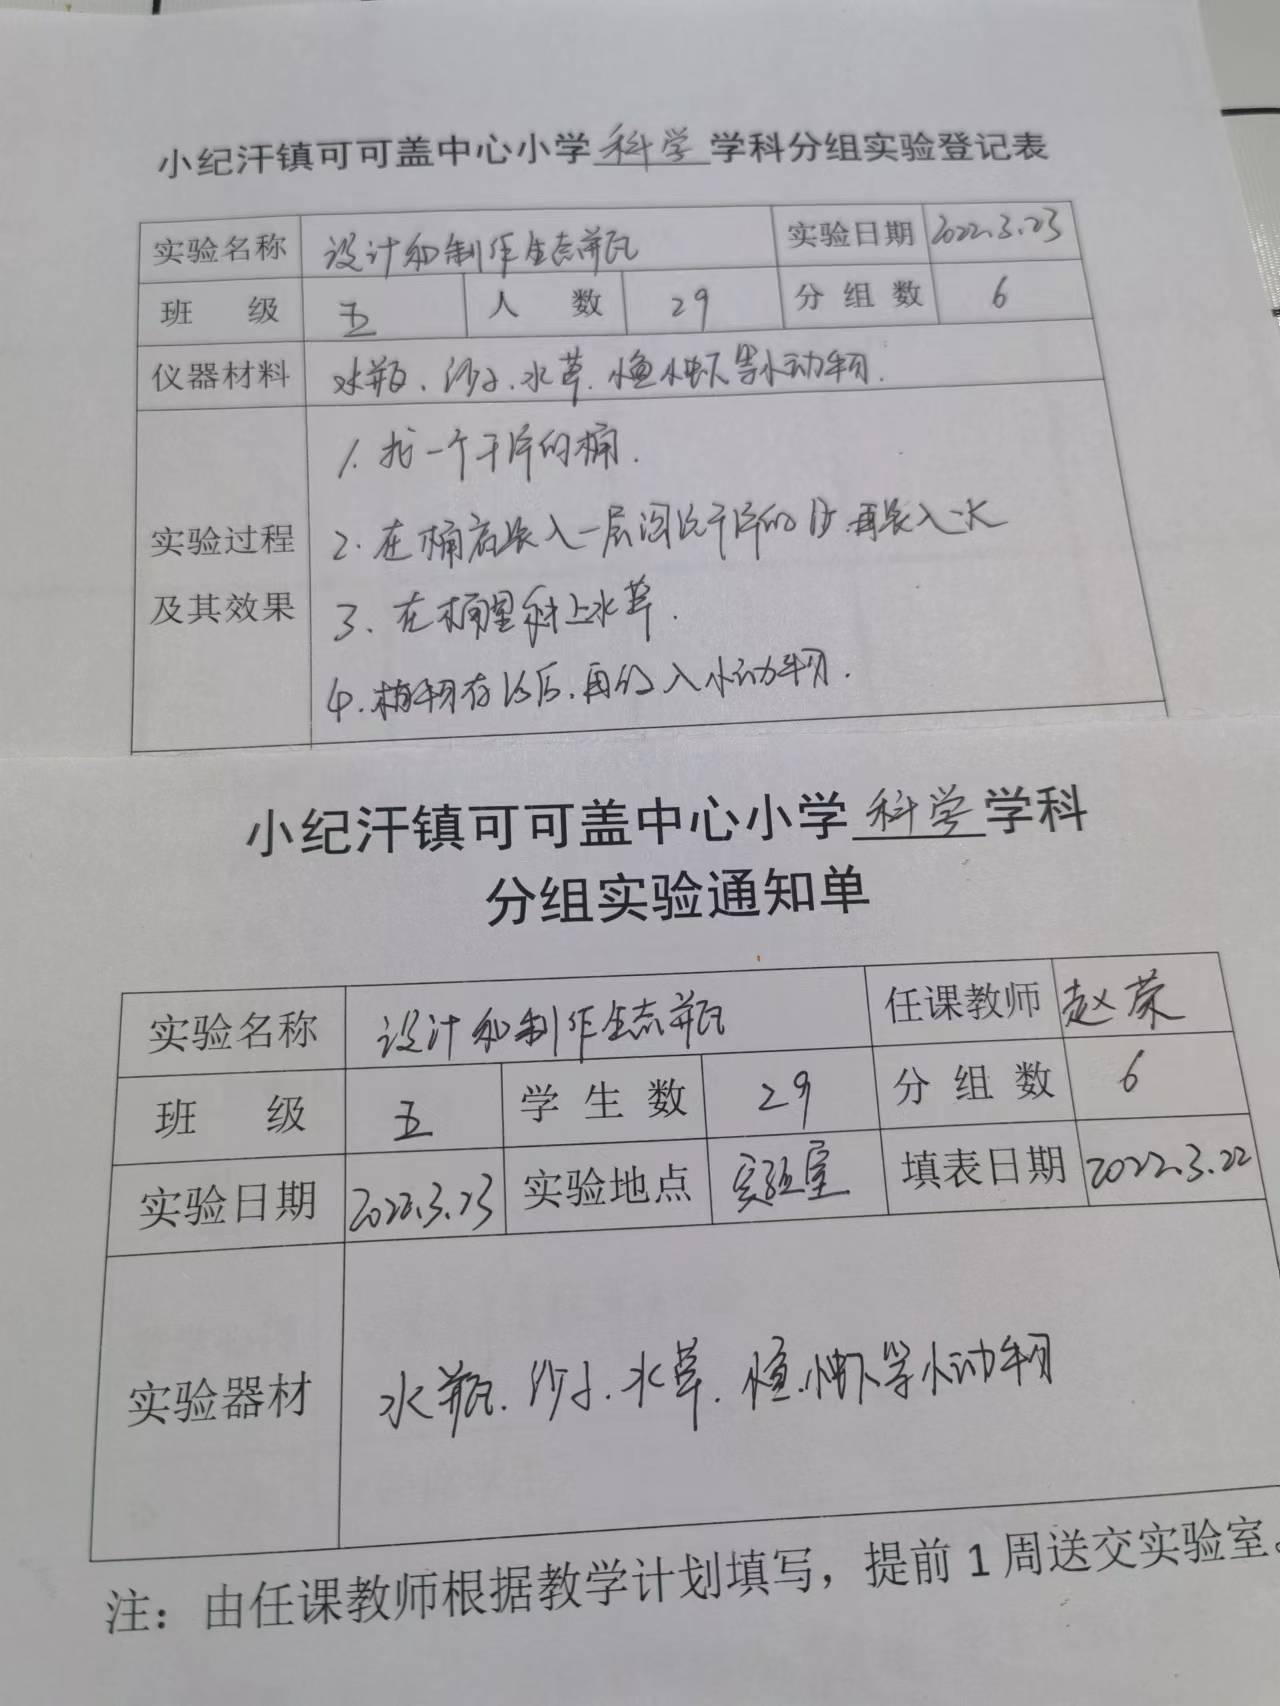 小纪汗镇可可盖中心小学科学学科分组实验登记表
实验名称 设计和制作生态瓶 实验日期 2022.3.23
班 级 五 人 数 29 分组数 6
仪器材料 水瓶、沙子、水草、小鱼小虾等小动物.
实验过程及其效果
1. 找一个干净的桶.
2. 在桶底装入一层淘洗干净的沙,再装入水
3、在桶里种上水草.
4. 植物存活后,再放入小动物.
小纪汗镇可可盖中心小学科学学科
分组实验通知单
实验名称 设计和制作生态瓶 任课教师 赵荣
班 级 五 学生数 29 分组数 6
实验日期 2022.3.23 实验地点 实验室 填表日期 2022.3.22
实验器材 水瓶、沙子、水草、小鱼、小虾等小动物
注：由任课教师根据教学计划填写，提前1周送交实验室。